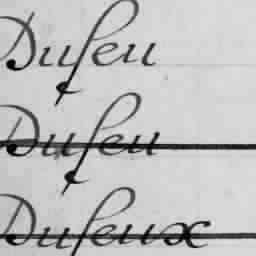 Duseu
Duseu
Duseux